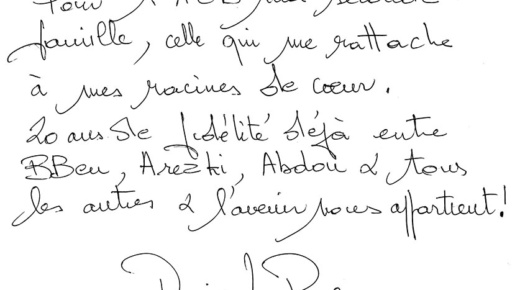 Pour
famille, celle qui me rattache
à mes racines de cœur.
20 ans de fidélité déjà entre
BBen, Arezki, Abdou & tous
les autres & l'avenir nous appartient!